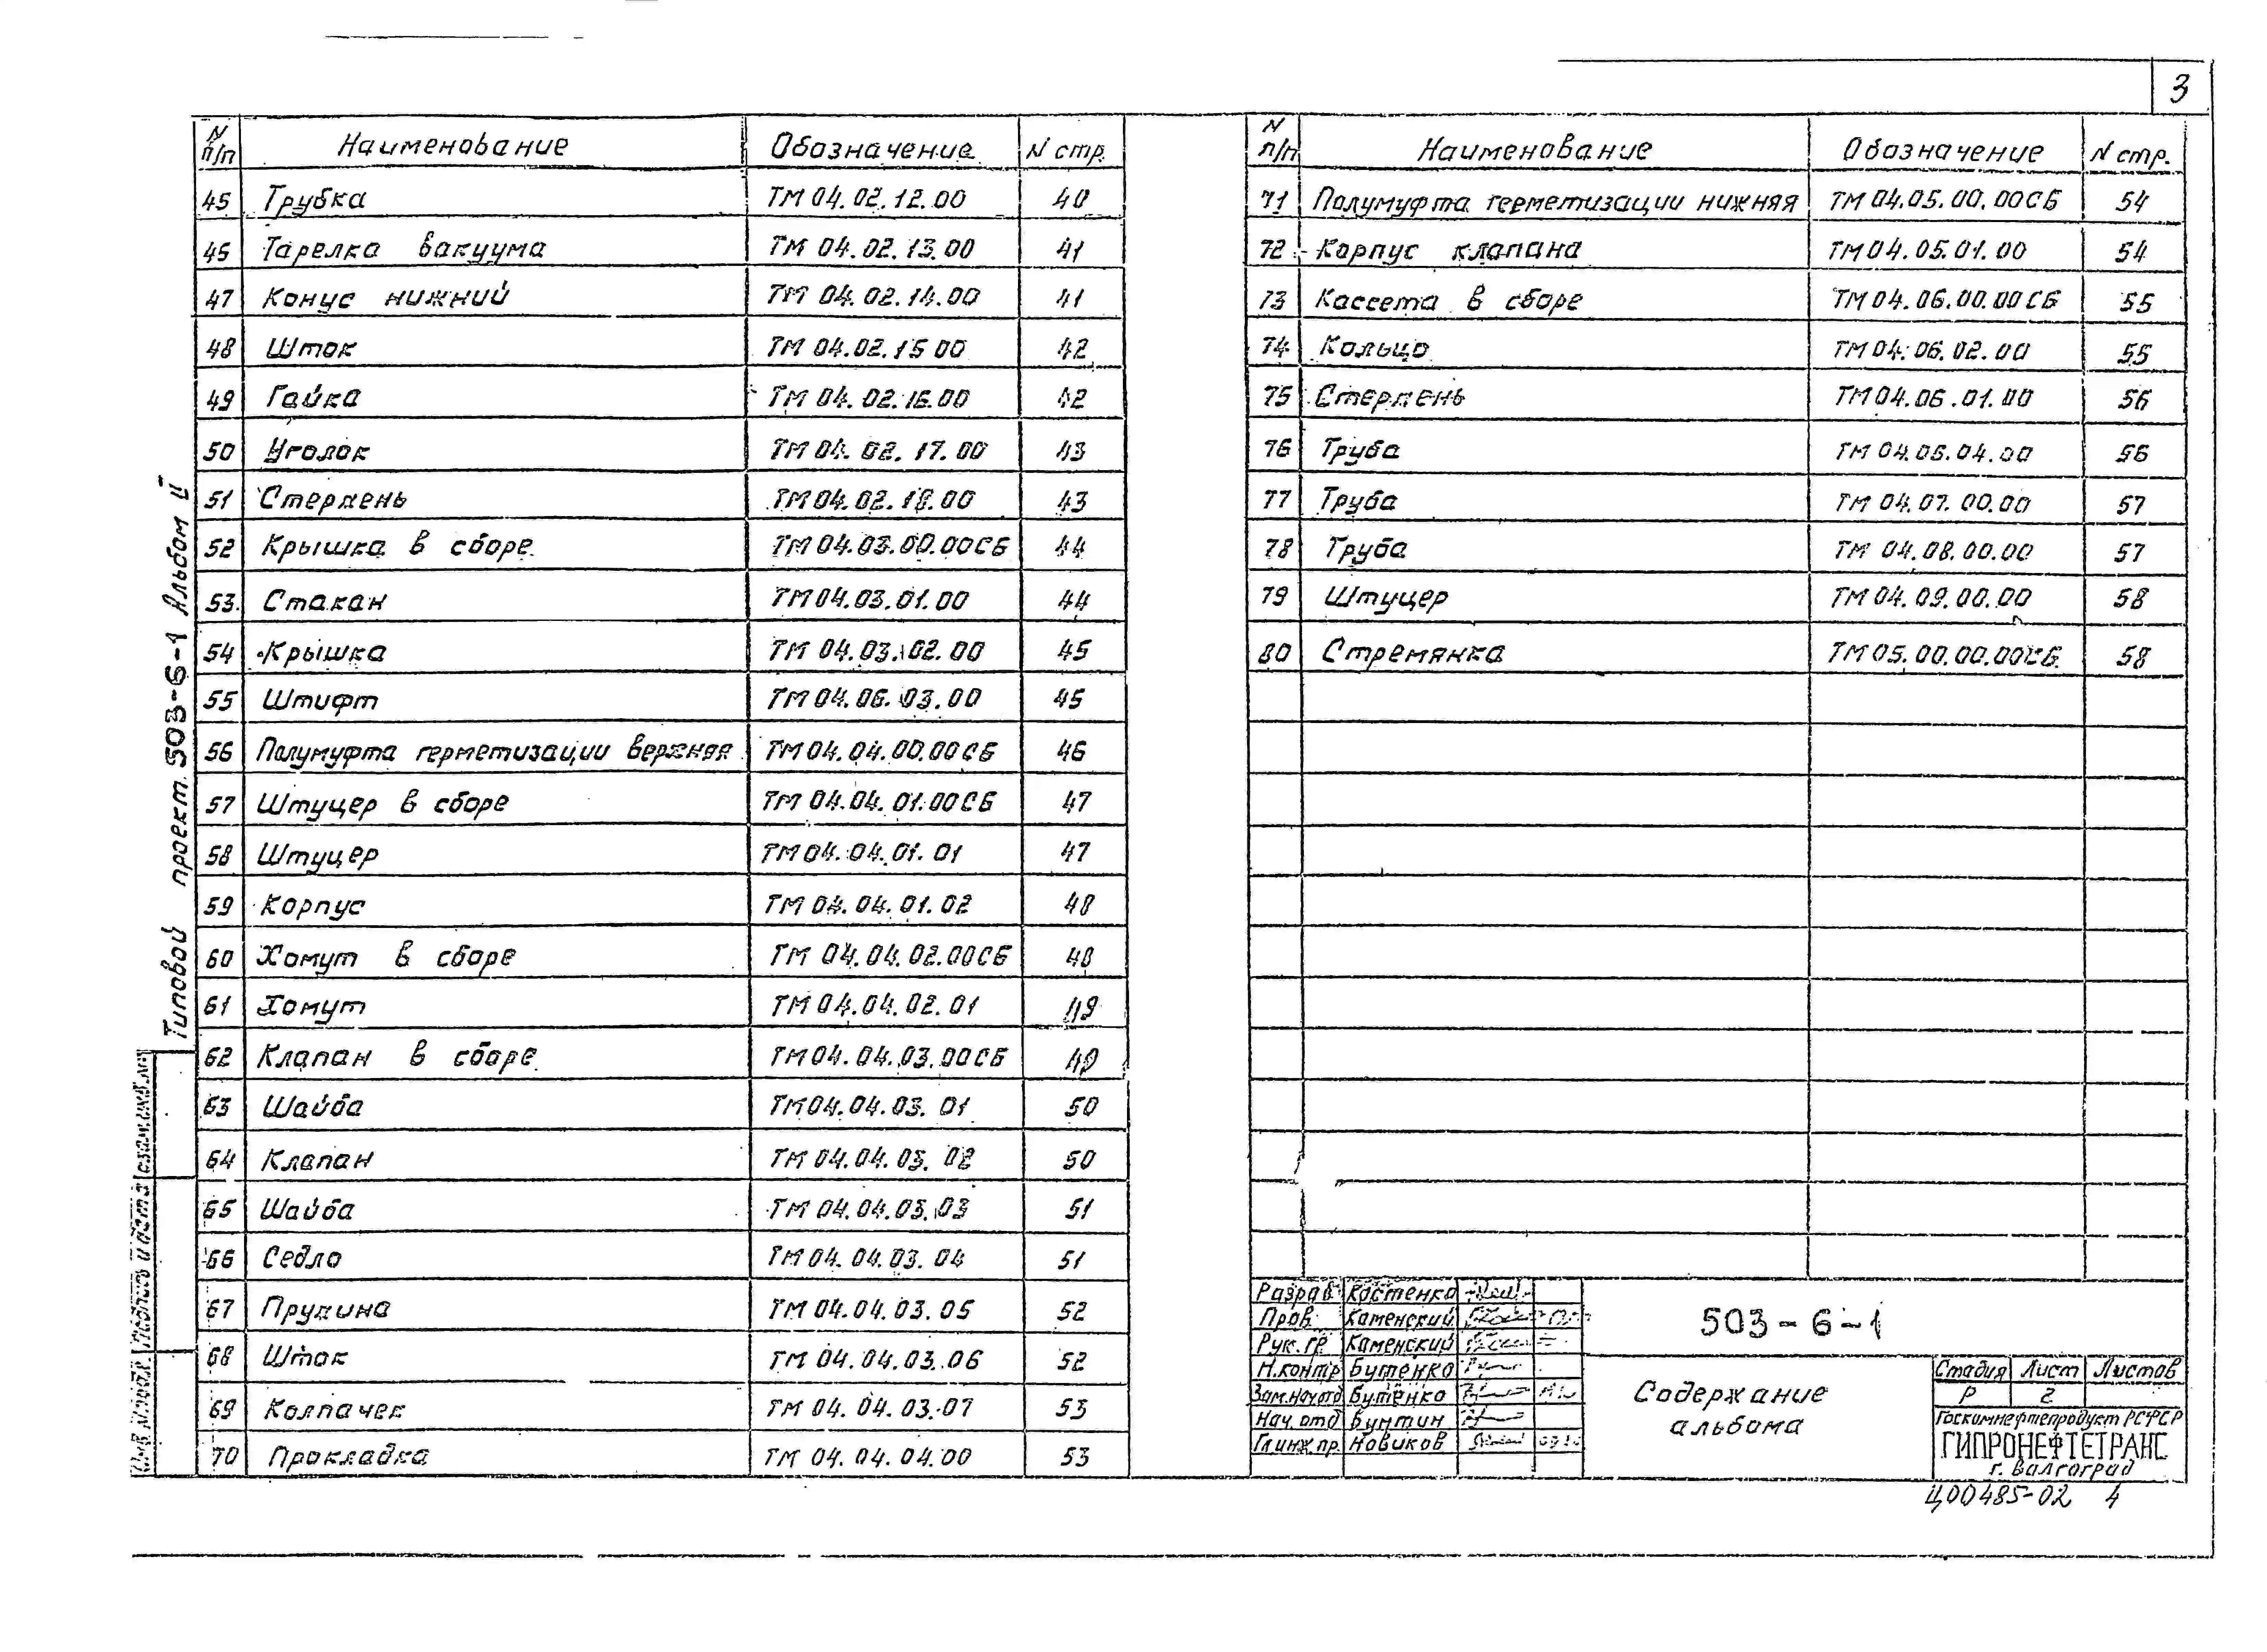 3
N п/п Наименование Обозначение N стр.
45 Трубка ТМ 04.02.12.00 40
46 Тарелка вакуума ТМ 04.02.13.00 41
47 Конус нижний ТМ 04.02.14.00 41
48 Шток ТМ 04.02.15 00 42
49 Гайка ТМ 04.02.16.00 42
50 Уголок ТМ 04.02.17.00 43
51 Стержень ТМ 04.02.18.00 43
52 Крышка в сборе ТМ 04.03.00.00СБ 44
53. Стакан ТМ 04.03.01.00 44
54 Крышка ТМ 04.03.02.00 45
55 Штифт ТМ 04.06.03.00 45
56 Полумуфта герметизации верхняя ТМ 04.04.00.00СБ 46
57 Штуцер в сборе ТМ 04.04.01.00СБ 47
58 Штуцер ТМ 04.04.01.01 47
59 Корпус ТМ 04.04.01.02 48
60 Хомут в сборе ТМ 04.04.02.00СБ 48
61 Хомут ТМ 04.04.02.01 49
62 Клапан в сборе ТМ 04.04.03.00СБ 49
63 Шайба ТМ 04.04.03.01 50
64 Клапан ТМ 04.04.03.02 50
65 Шайба ТМ 04.04.03.03 51
66 Седло ТМ 04.04.03.04 51
67 Пружина ТМ 04.04.03.05 52
68 Шток ТМ 04.04.03.06 52
69 Колпачек ТМ 04.04.03.07 53
70 Прокладка ТМ 04.04.04.00 53
N п/п Наименование Обозначение N стр.
71 Полумуфта герметизации нижняя ТМ 04.05.00.00СБ 54
72 Корпус клапана ТМ 04.05.01.00 54
73 Кассета в сборе ТМ 04.06.00.00СБ 55
74 Кольцо ТМ 04.06.02.00 55
75 Стержень ТМ 04.06.01.00 56
76 Труба ТМ 04.06.04.00 56
77 Труба ТМ 04.07.00.00 57
78 Труба ТМ 04.08.00.00 57
79 Штуцер ТМ 04.09.00.00 58
80 Стремянка ТМ 05.00.00.00СБ. 58
Типовой проект 503-6-1 Альбом II
взам.инв.№
Подпись и дата
Инв.№подл.
Разраб Костенко
Пров. Каменский
Рук.гр Каменский
Н.контр Бутенко
Зам.нач.отд Бутенко
Нач.отд Бунтин
Гл.инж.пр. Новиков
503-6-1
Содержание
альбома
Стадия Лист Листов
Р 2
Госкомнефтепродукт РСФСР
ГИПРОНЕФТЕТРАНС
г. Волгоград
Ц00485-02 4